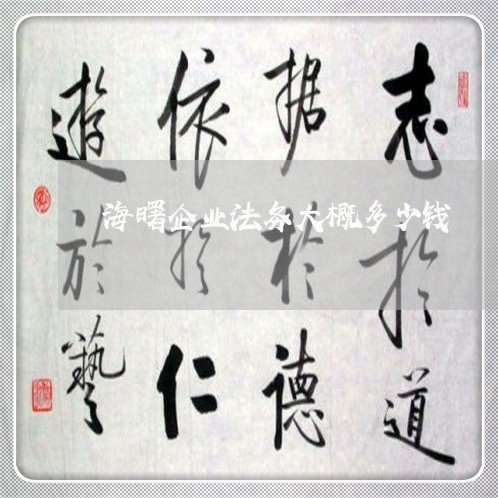 志於道
据於德
依於仁
遊於藝
海曙企业法务大概多少钱